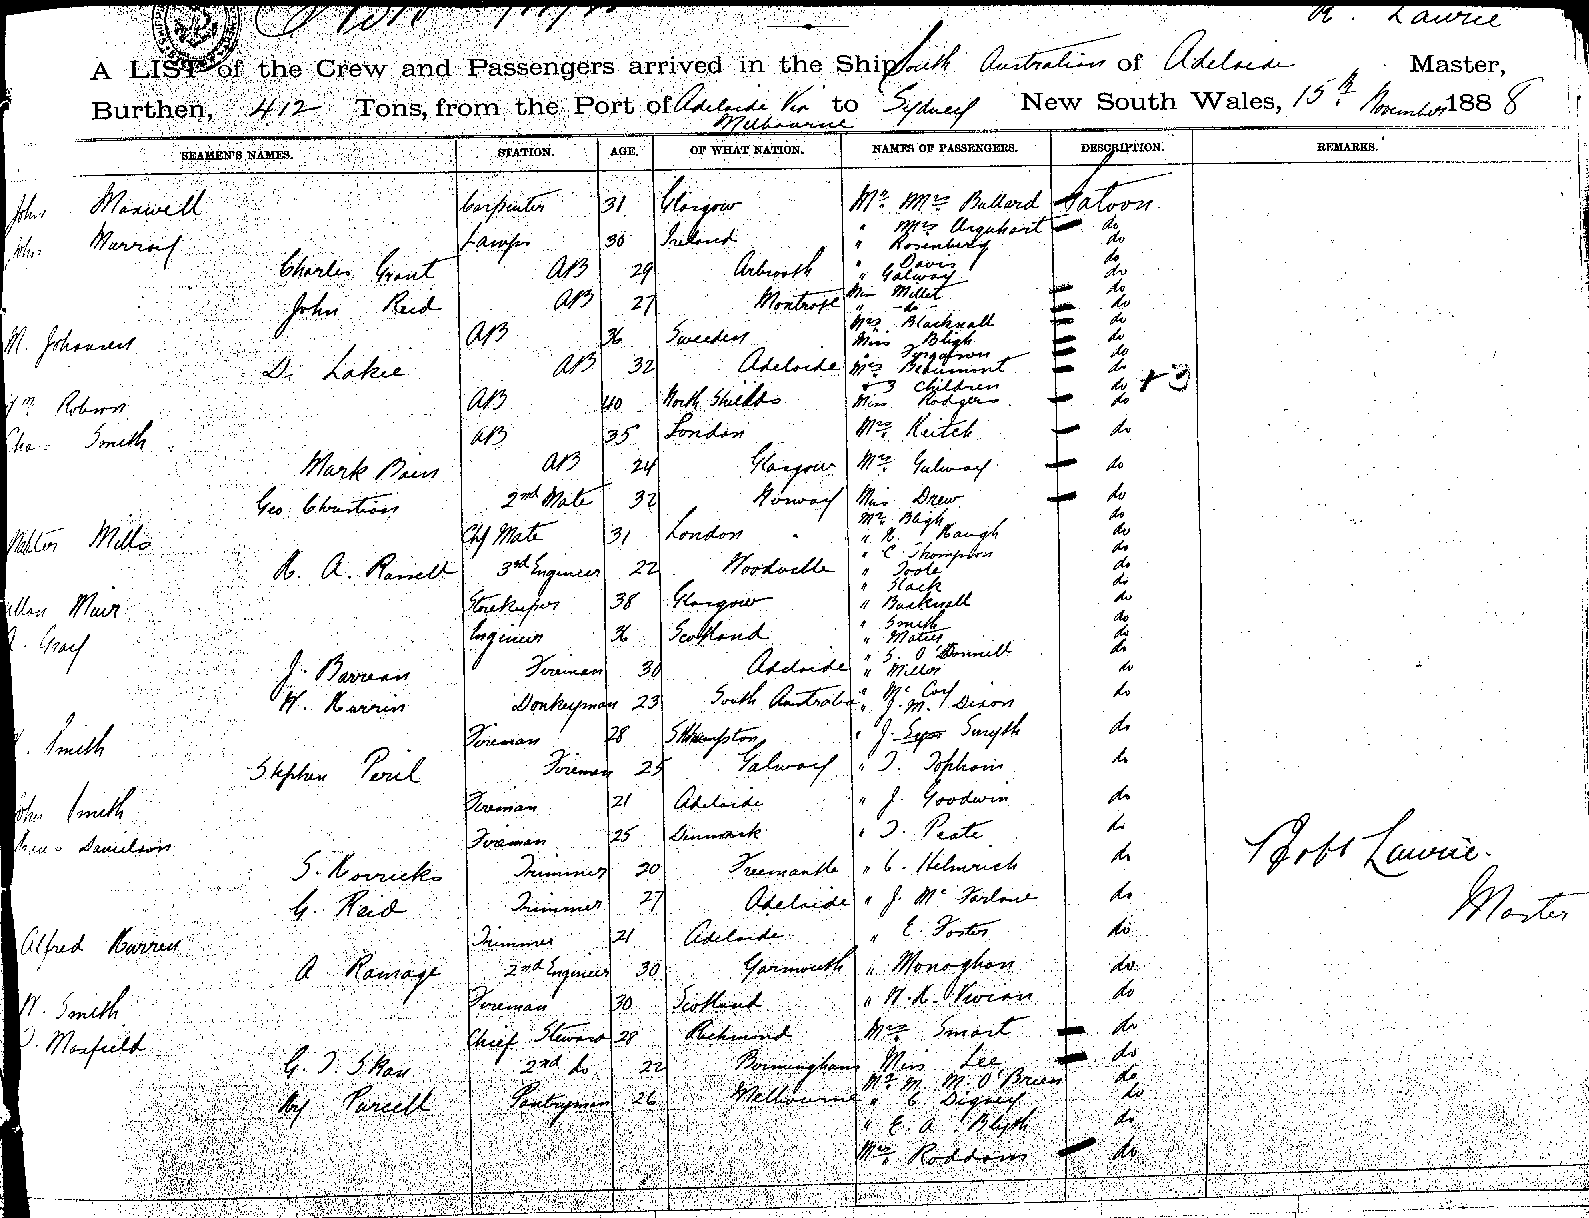 R. Lawrie
A LIST of the Crew and Passengers arrived in the Ship South Australian of Adelaide Master,
Burthen, 412 Tons, from the Port of Adelaide Via Melbourne to Sydney New South Wales, 15th November 1888
SEAMEN'S NAMES. STATION. AGE. OF WHAT NATION. NAMES OF PASSENGERS. DESCRIPTION. REMARKS.
John Maxwell Carpenter 31 Glasgow Mr. Mrs Bullard Saloon
John Murray Lamps 30 Ireland " Mrs Arquhart do
" Rosenberg do
Charles Grant AB 29 Arbroath " Davis do
" Galway do
John Reid AB 27 Montrose Miss Millet do
" do do
M. Johansen AB 36 Sweden Mrs Blacknall do
Miss Bligh do
D. Lakie AB 32 Adelaide " Ferguson do
Mrs Beaumont do
+ 3 children do + 3
Wm Robson AB 40 North Shields Miss Rodgers do
Chas Smith AB 35 London Mrs Keitch do
Mark Bain AB 24 Glasgow Mrs Galway do
Geo Christian 2nd Mate 32 Norway Miss Drew do
Mr. Bligh do
Walter Mills Chf Mate 31 London " R. Haugh do
" C Thompson do
R. A. Russell 3rd Engineer 22 Woodville " Toole do
" Slack do
Allan Muir Storekeeper 38 Glasgow " Bucknall do
" Smith do
A. Gray Engineer 36 Scotland " Maties do
" S. O'Donnell do
J. Barrean Fireman 30 Adelaide " Miller do
W. Kurrin Donkeyman 23 South Australia " McCoy do
" J. M. Dixon
W. Smith Fireman 28 SHhampton " J. Smyth do
Stephen Peril Fireman 25 Galway " T. Topham do
John Smith Fireman 21 Adelaide " J. Goodwin do
Danielson Fireman 25 Denmark " T. Peate do
S. Horricks Trimmer 20 Freemantle " C. Helmrich do
G. Reid Trimmer 27 Adelaide " J. McFarlane do
Robt Lawrie.
Master
Alfred Murren Trimmer 21 Adelaide " E. Foster do
A Ramage 2nd Engineer 30 Yarmouth " Monoghan do
W. Smith Fireman 30 Scotland " W. H. Vivian do
Maxfield Chief Steward 28 Richmond Mrs Smart do
G. T. Skan 2nd do 22 Birmingham Miss Lee do
Mr. M. M. O'Brien do
Purcell Pantryman 26 Melbourne " C Digney do
" E. A. Blyth do
Mrs Roddom do